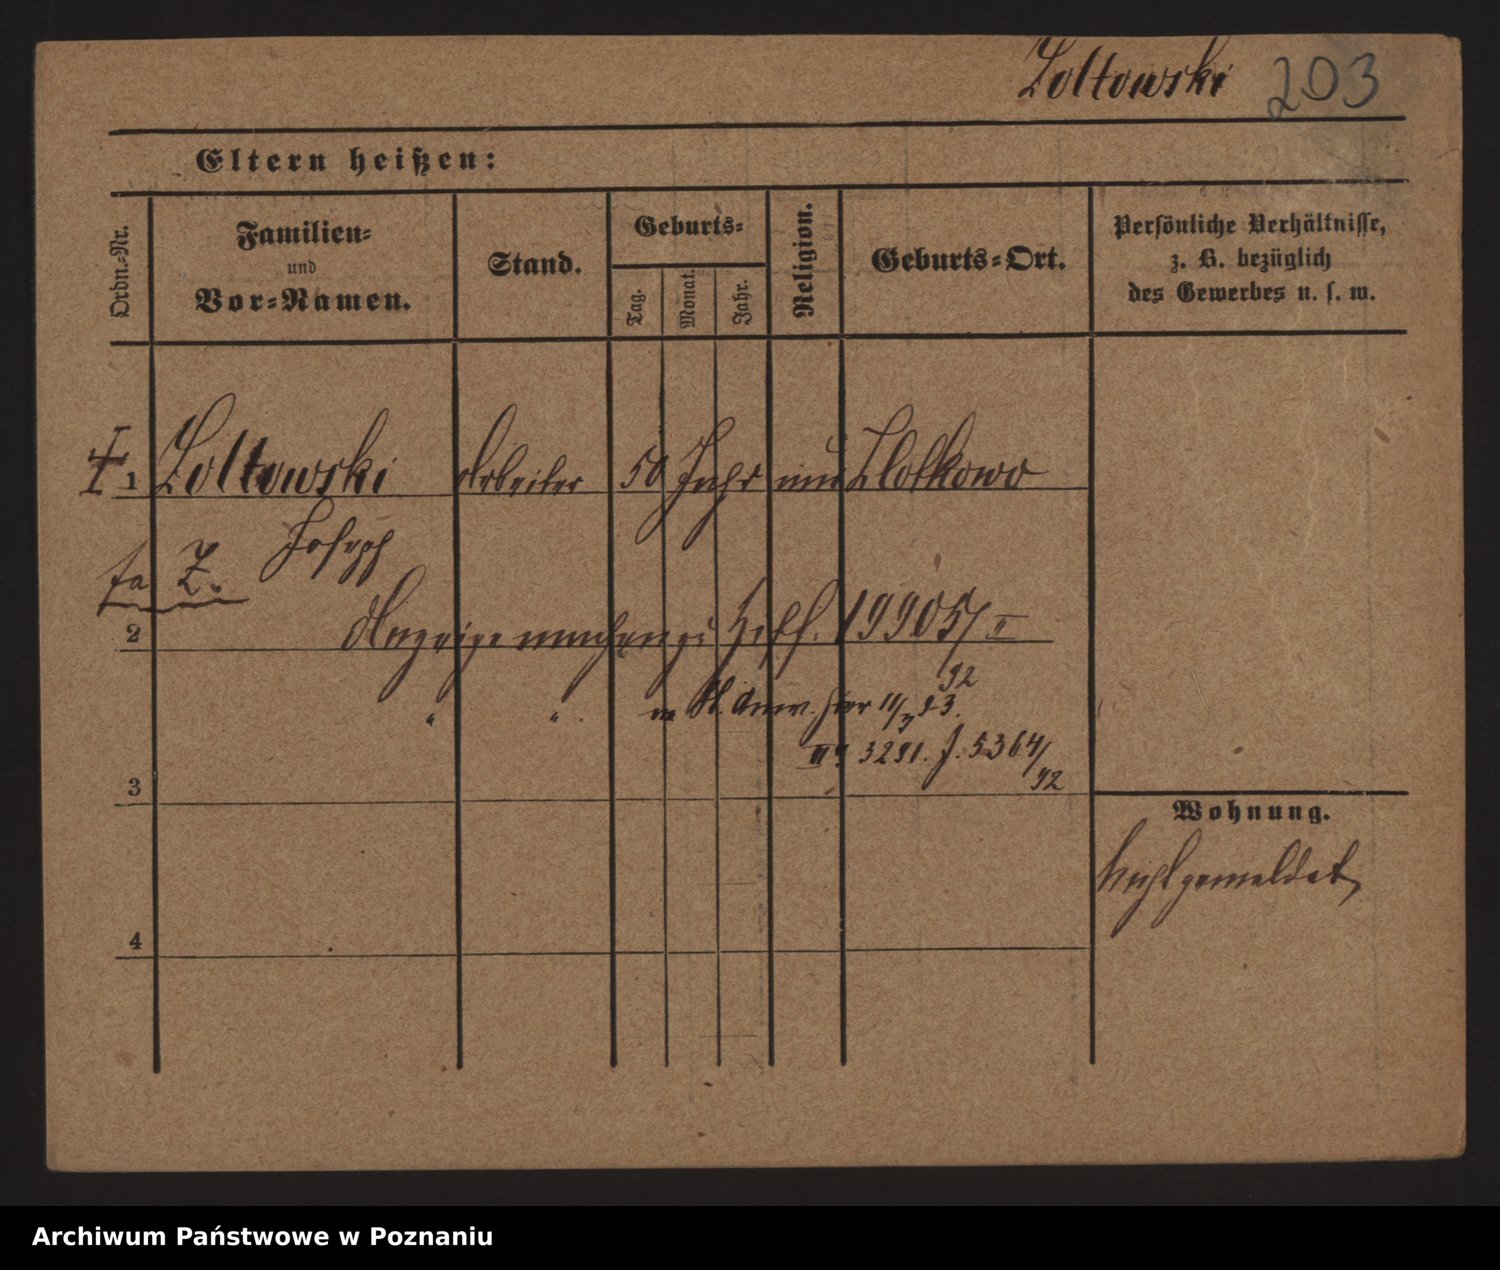 Zoltowski 203
Eltern heißen:
Ordn.-Nr.
Familien-
und
Vor-Namen.
Stand.
Geburts-
Tag.
Monat.
Jahr.
Religion.
Geburts-Ort.
Persönliche Verhältnisse,
z. B. bezüglich
des Gewerbes u. s. w.
1 Zoltowski Arbeiter 50 Jahr aus Zlotkowo
Joseph
Z.
2 Anzeige machen zu 19905/II
92
" " St. Anw. hier 11/3 93.
3291. J. 5364/
92
3
Wohnung.
Nicht gemeldet
4
Archiwum Państwowe w Poznaniu